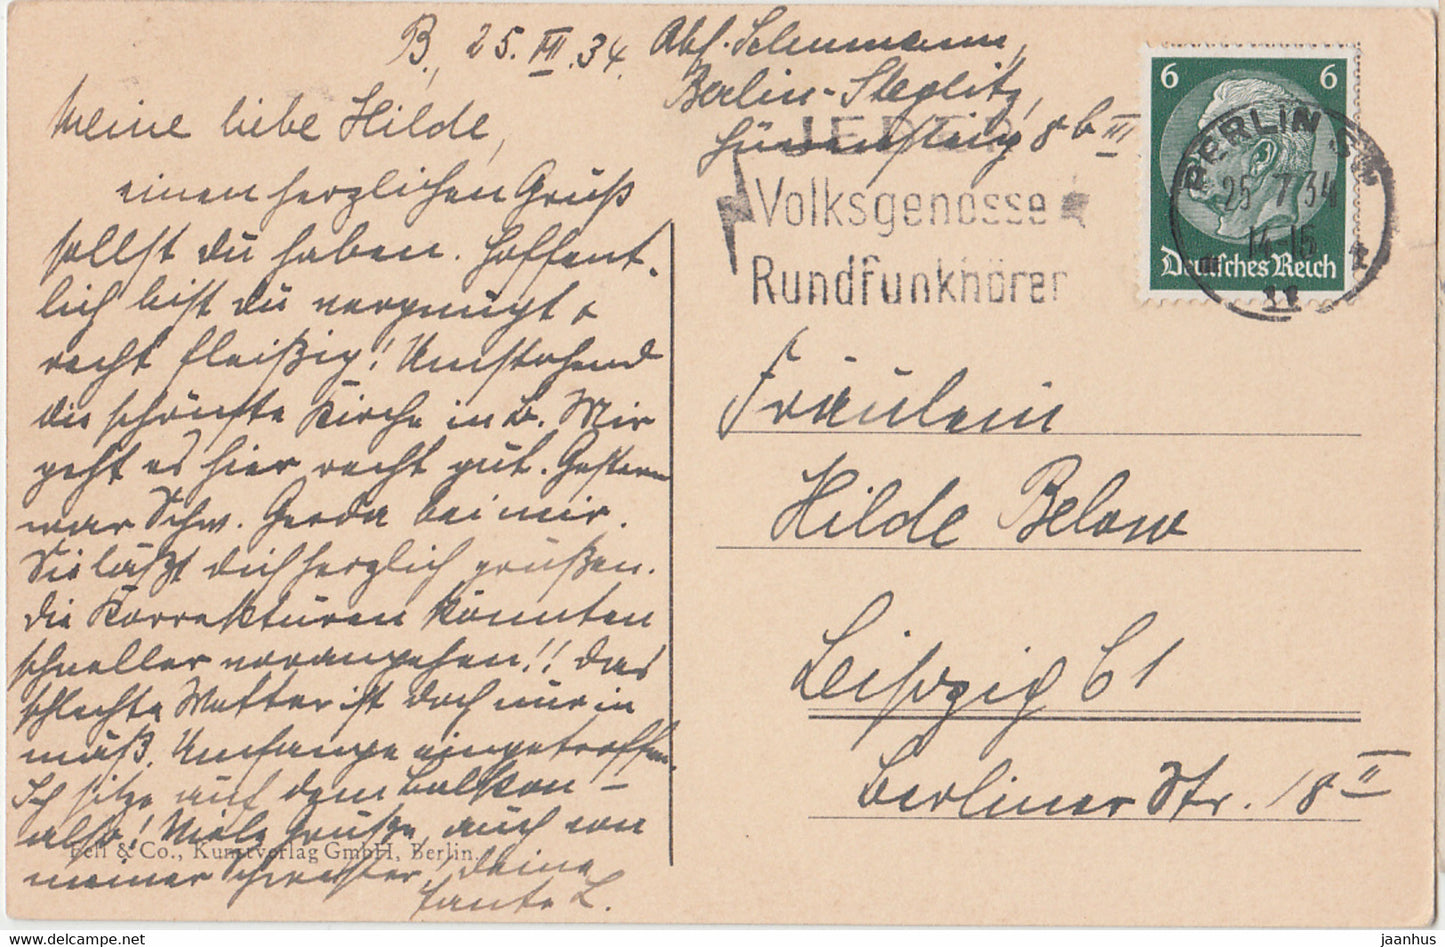 B., 25. VII. 34.
Meine liebe Hilde,
einen herzlichen Gruß
sollst du haben. Hoffent-
lich bist du vergnügt &
recht fleißig! Umstehend
die schönste Kirche in B. Mir
geht es hier recht gut. Gestern
war Schw. Gerda bei mir.
Sie läßt dich herzlich grüßen.
Die Korrekturen könnten
schneller vorangehen!! Das
schlechte Wetter ist doch nur in
mäß. Umfange eingetroffen.
Ich sitze auf dem Balkon –
also! Viele Grüße, auch von
meiner Schwester! Deine
Tante L.
Abs. Schumann,
Berlin-Steglitz,
8 b III
JEDER
Volksgenosse
Rundfunkhörer
6 6
Deutsches Reich
BERLIN
25.7.34
14-15
Fräulein
Hilde Below
Leipzig C1
Berliner Str. 18 II
Fell & Co., Kunstverlag GmbH, Berlin.
www.delcampe.net
jaanhus